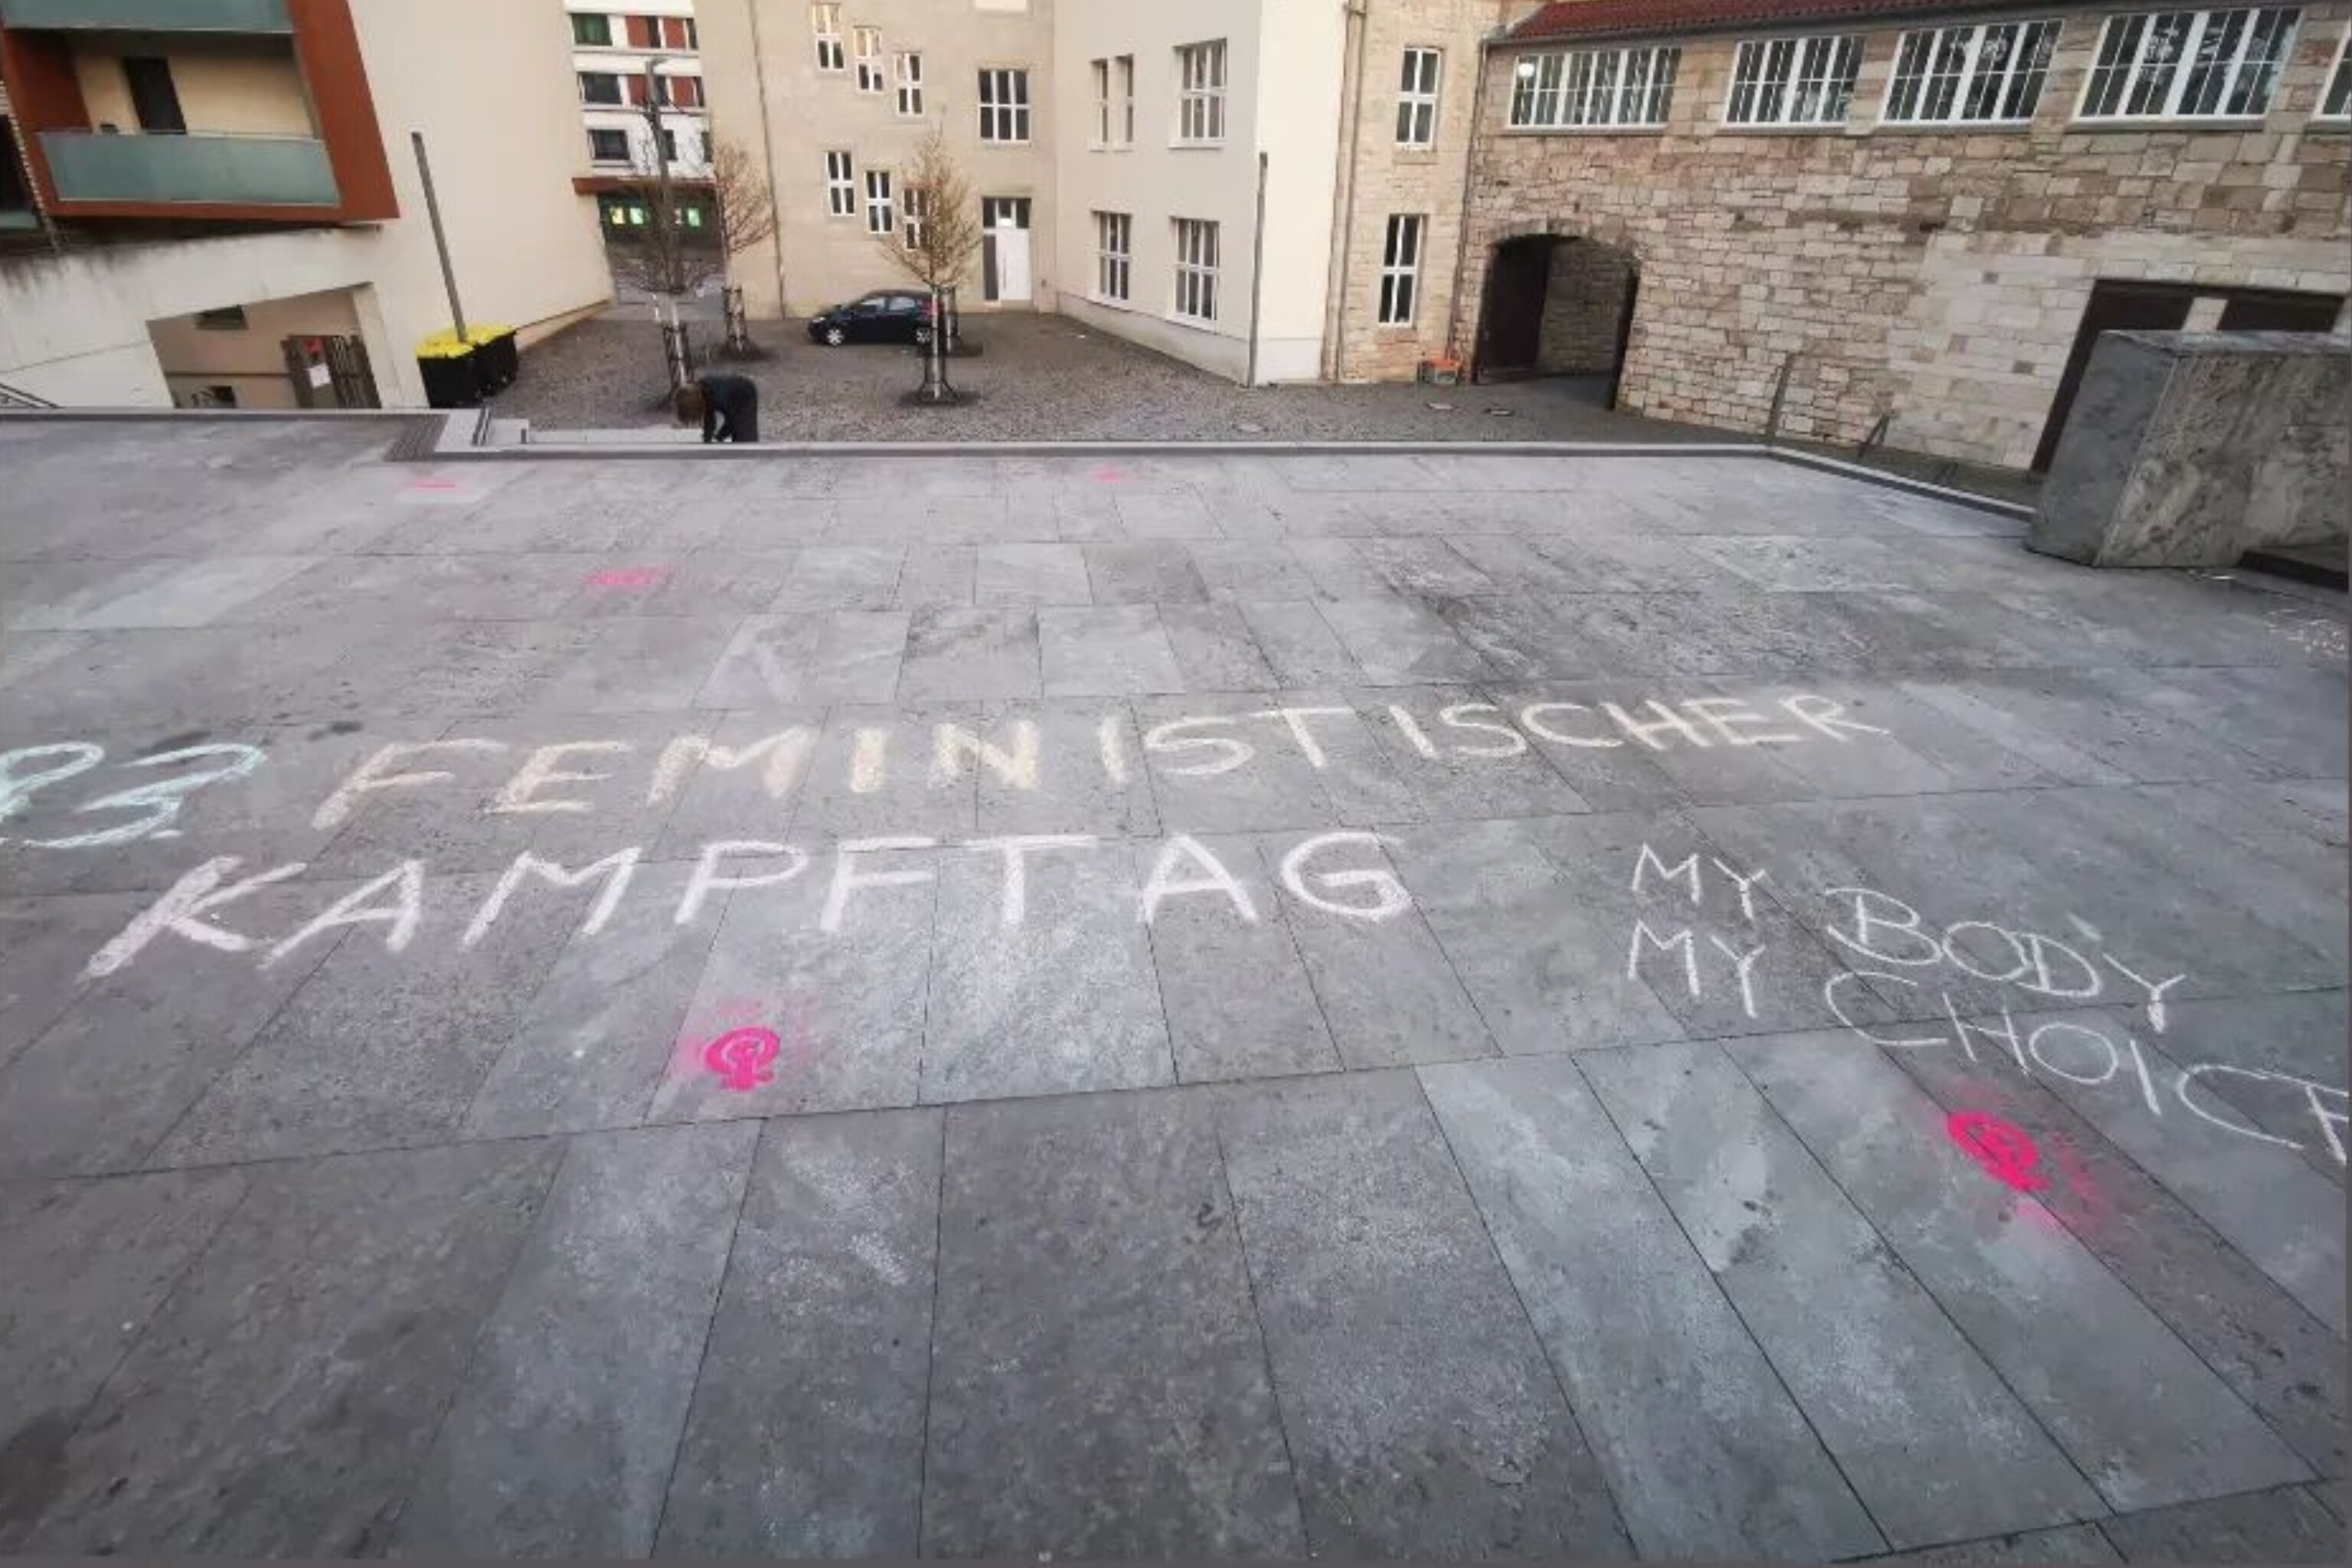 8.3. FEMINISTISCHER
KAMPFTAG
MY BODY
MY CHOICE